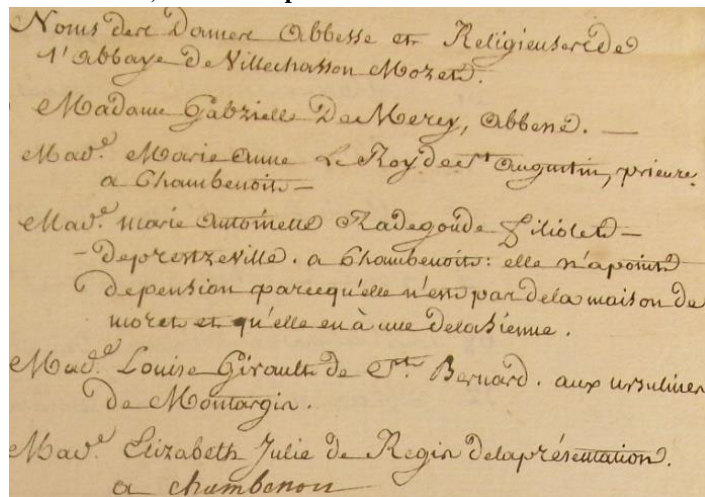 Noms des Dames Abbesse et Religieuses de
l'Abbaye de Villechasson Mozet.
Madame Gabrielle De Mercy, Abbesse. —
Mad.e Marie Anne Le Roy de St Augustin, prieure
a Chambenoit —
Mad.e marie Antoinette Radegonde Filiolet —
- deprentzeville. a Chambenoit: elle n'a point
de pension parcequ'elle n'est pas de la maison de
moret et qu'elle en à une de la Sienne.
Mad.e Louise Girault de St. Bernard. aux ursulines
de Montargis.
Mad.e Elizabeth Julie de Regis de la présentation.
a chambenoit